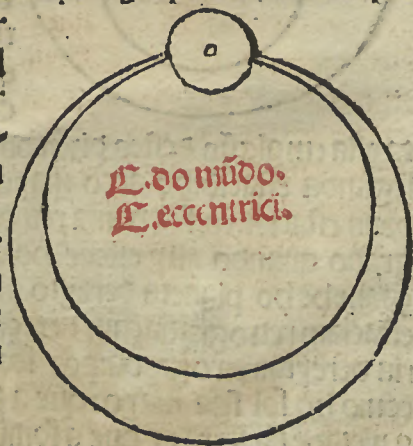 C.do mũdo.
C.eccentrici.